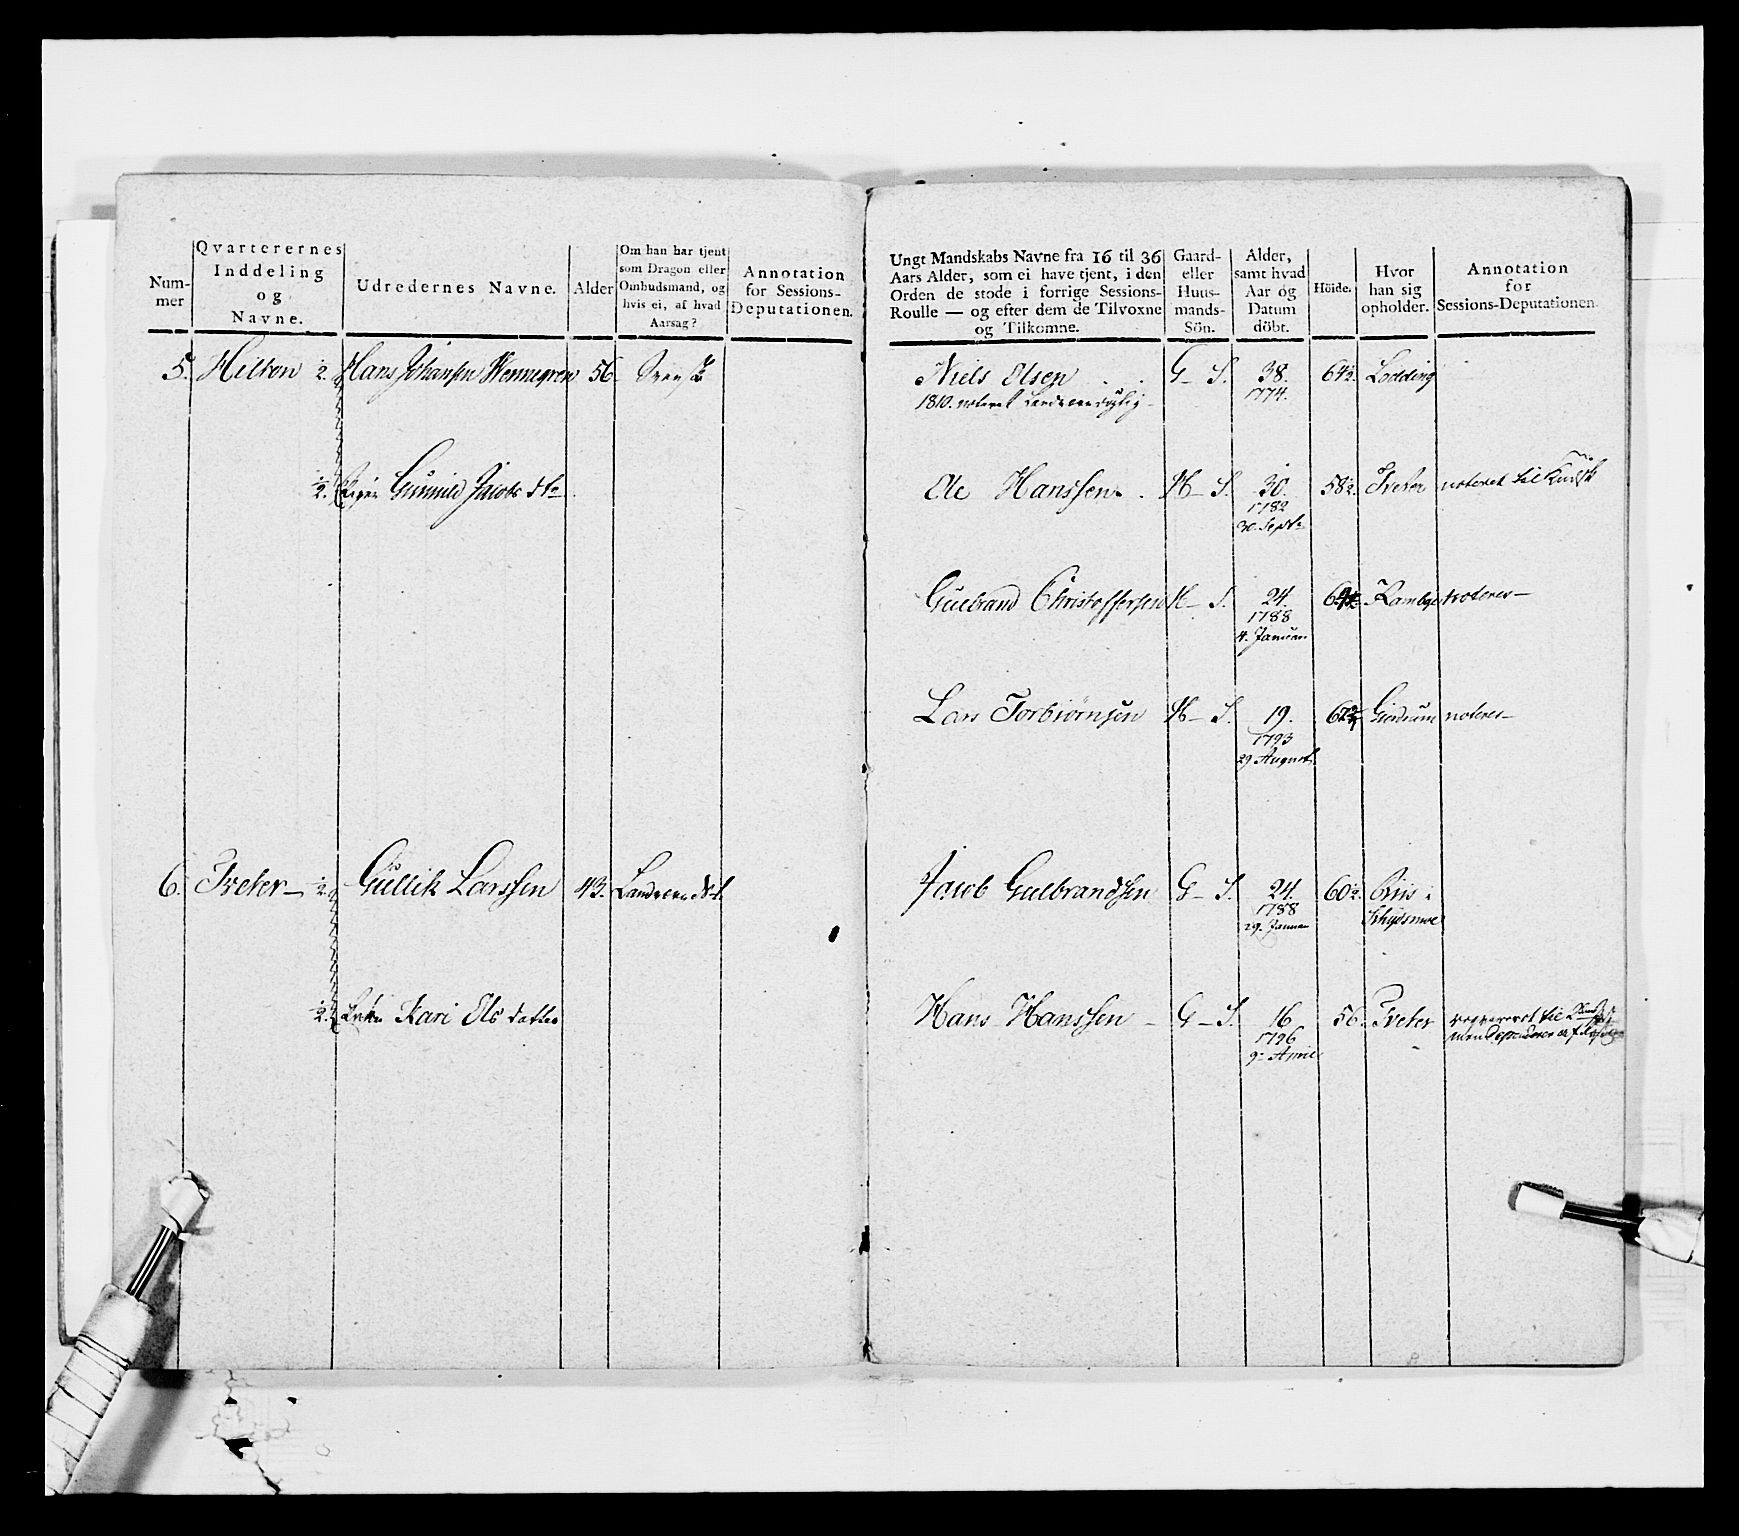 Num-
mer
Qvarterernes
Inddeling
og
Navne.
Udredernes Navne.
Alder
Om han har tjent
som Dragon eller
Ombudsmand, og
hvis ei, af hvad
Aarsag?
Annotation
for Sessions-
Deputationen.
5. Hilton ½. Hans Johansen Wennegren 56. Svensk
½. Gunild Jacobs dtr
6. Tveter ½. Gullik Larssen 43.
½. Kari Ols datter
Ungt Mandskabs Navne fra 16 til 36
Aars Alder, som ei have tjent, i den
Orden de stode i forrige Sessions-
Roulle — og efter dem de Tilvoxne
og Tilkomne.
Gaard-
eller
Huus-
mands-
Sön.
Alder,
samt hvad
Aar og
Datum
döbt.
Höide.
Hvor
han sig
opholder.
Annotation
for
Sessions-Deputationen.
Niels Olsen G. S. 38. 64½. Lodding
1810. noteret 1774.
Ole Hanssen H. S. 30. 58½. Tveter noteret til Kudsk
1782
30. Septr
Gulbrand Christoffersen H. S. 24. noteres
1788
4. Januar
Lars Torbiörnsen H. S. 19. Gierdrum noteres
1793
29 August
Jacob Gulbrandsen G. S. 24. 60½. i
1788
29. Januar
Hans Hanssen G. S. 16 56. Tveter til
1796 men
9. April